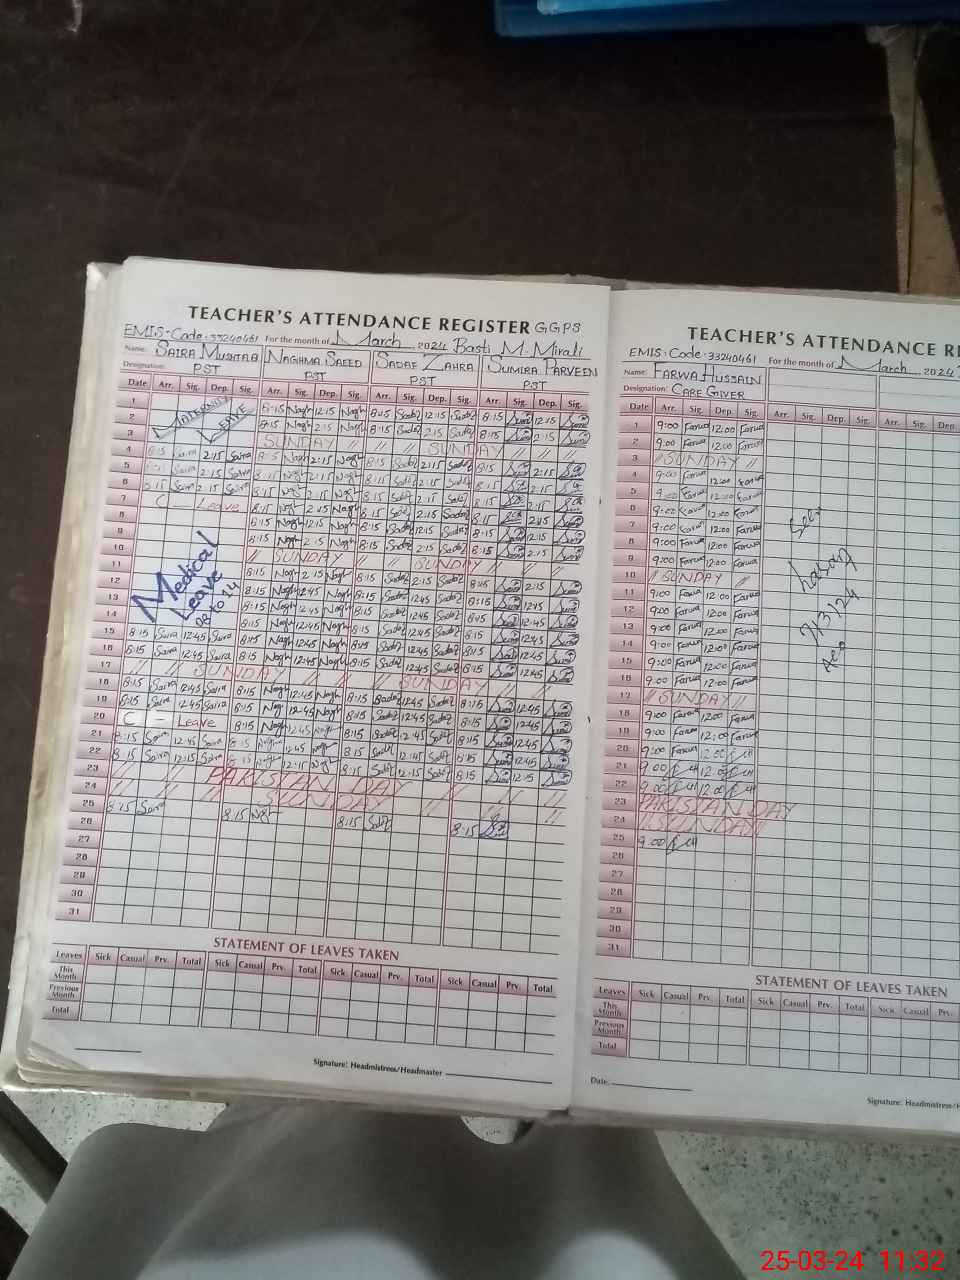 TEACHER'S ATTENDANCE REGISTER GGPS
EMIS-Code-33240461 For the month of March 2024 Basti M. Mirali
Name: SAIRA MUSHTAQ NAGHMA SAEED SADAF ZAHRA SUMIRA PARVEEN
Designation: PST PST PST PST
Date Arr. Sig. Dep. Sig. Arr. Sig. Dep. Sig. Arr. Sig. Dep. Sig. Arr. Sig. Dep. Sig.
MATERNITY LEAVE
1 8:15 Nagh 12:15 Nagh 8:15 Sadaf 12:15 Sadaf 8:15 12:15
2 8:15 Nagh 2:15 Nagh 8:15 Sadaf 2:15 Sadaf 8:15 2:15
3 SUNDAY // // SUNDAY //
4 8:15 Saira 2:15 Saira 8:15 Nagh 2:15 Nagh 8:15 Sadaf 2:15 Sadaf 8:15 2:15
5 8:15 Saira 2:15 Saira 8:15 Nagh 2:15 Nagh 8:15 Sadaf 2:15 Sadaf 8:15 2:15
6 8:15 Saira 2:15 Saira 8:15 Nagh 2:15 Nagh 8:15 Sadaf 2:15 Sadaf 8:15 2:15
7 C - Leave 8:15 Nagh 2:15 Nagh 8:15 Sadaf 2:15 Sadaf 8:15 2:15
Medical Leave 08 to 14
8 8:15 Nagh 12:15 Nagh 8:15 Sadaf 12:15 Sadaf 8:15 12:15
9 8:15 Nagh 2:15 Nagh 8:15 Sadaf 2:15 Sadaf 8:15 2:15
10 // SUNDAY // // SUNDAY //
11 8:15 Nagh 2:15 Nagh 8:15 Sadaf 12:45 Sadaf 8:15 2:15
12 8:15 Nagh 12:45 Nagh 8:15 Sadaf 12:45 Sadaf 8:15 12:45
13 8:15 Nagh 12:45 Nagh 8:15 Sadaf 12:45 Sadaf 8:15 12:45
14 8:15 Nagh 12:45 Nagh 8:15 Sadaf 12:45 Sadaf 8:15 12:45
15 8:15 Saira 12:45 Saira 8:15 Nagh 12:45 Nagh 8:15 Sadaf 12:45 Sadaf 8:15 12:45
16 8:15 Saira 12:45 Saira 8:15 Nagh 12:45 Nagh 8:15 Sadaf 12:45 Sadaf 8:15 12:45
17 // SUNDAY // // SUNDAY // //
18 8:15 Saira 12:45 Saira 8:15 Nagh 12:45 Nagh 8:15 Sadaf 12:45 Sadaf 8:15 12:45
19 8:15 Saira 12:45 Saira 8:15 Nagh 12:45 Nagh 8:15 Sadaf 12:45 Sadaf 8:15 12:45
20 C - Leave 8:15 Nagh 12:45 Nagh 8:15 Sadaf 12:45 Sadaf 8:15 12:45
21 8:15 Saira 12:45 Saira 8:15 Nagh 12:45 Nagh 8:15 Sadaf 12:45 Sadaf 8:15 12:45
22 8:15 Saira 12:15 Saira 8:15 Nagh 12:15 Nagh 8:15 Sadaf 12:15 Sadaf 8:15 12:15
23 // // PAKISTAN DAY // // //
24 // // SUNDAY // // //
25 8:15 Saira 8:15 Nagh 8:15 Sadaf 8:15
26
27
28
29
30
31
STATEMENT OF LEAVES TAKEN
Leaves Sick Casual Prv. Total Sick Casual Prv. Total Sick Casual Prv. Total Sick Casual Prv. Total
This Month
Previous Month
Total
Signature: Headmistress/Headmaster
TEACHER'S ATTENDANCE RE
EMIS-Code-33240461 For the month of March 2024
Name: FARWA HUSSAIN
Designation: CARE GIVER
Date Arr. Sig. Dep. Sig. Arr. Sig. Dep. Sig. Arr. Sig. Dep.
1 9:00 Farwa 12:00 Farwa
2 9:00 Farwa 12:00 Farwa
3 // SUNDAY //
4 9:00 Farwa 12:00 Farwa
5 9:00 Farwa 12:00 Farwa
6 9:00 Farwa 12:00 Farwa
7 9:00 Farwa 12:00 Farwa
8 9:00 Farwa 12:00 Farwa
9 9:00 Farwa 12:00 Farwa
10 // SUNDAY //
11 9:00 Farwa 12:00 Farwa
12 9:00 Farwa 12:00 Farwa
13 9:00 Farwa 12:00 Farwa
14 9:00 Farwa 12:00 Farwa
15 9:00 Farwa 12:00 Farwa
16 9:00 Farwa 12:00 Farwa
17 // SUNDAY //
18 9:00 Farwa 12:00 Farwa
19 9:00 Farwa 12:00 Farwa
20 9:00 Farwa 12:00 F.H
21 9:00 F.H 12:00 F.H
22 9:00 F.H 12:00 F.H
23 PAKISTAN DAY
24 SUNDAY
25 9:00 F.H
26
27
28
29
30
31
Seen
7/3/24
AEO
STATEMENT OF LEAVES TAKEN
Leaves Sick Casual Prv. Total Sick Casual Prv. Total Sick Casual Prv.
This Month
Previous Month
Total
Date:
Signature: Headmistress/H
25-03-24 11:32